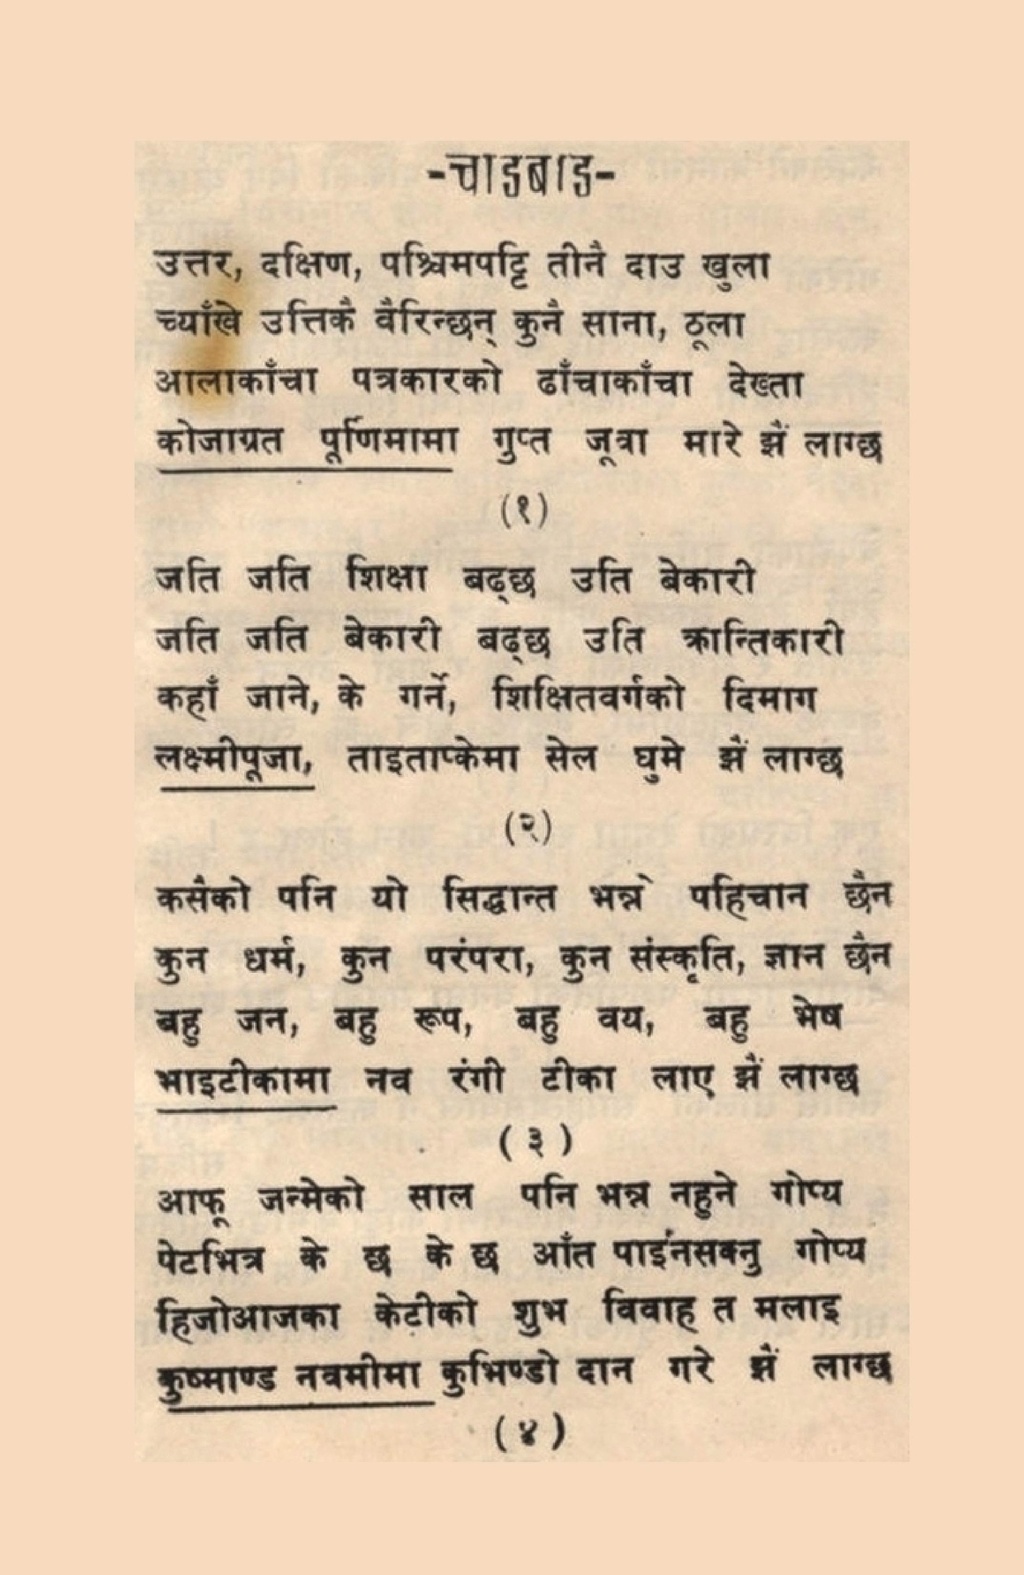 -चाडबाड-
उत्तर, दक्षिण, पश्चिमपट्टि तीनै दाउ खुला
च्याँखे उत्तिकै वैरिन्छन् कुनै साना, ठूला
आलाकाँचा पत्रकारको ढाँचाकाँचा देख्ता
कोजाग्रत पूर्णिमामा गुप्त जूवा मारे झैं लाग्छ
(१)
जति जति शिक्षा बढ्छ उति बेकारी
जति जति बेकारी बढ्छ उति क्रान्तिकारी
कहाँ जाने, के गर्ने, शिक्षितवर्गको दिमाग
लक्ष्मीपूजा, ताइताप्केमा सेल घुमे झैं लाग्छ
(२)
कसैको पनि यो सिद्धान्त भन्ने पहिचान छैन
कुन धर्म, कुन परंपरा, कुन संस्कृति, ज्ञान छैन
बहु जन, बहु रूप, बहु वय, बहु भेष
भाइटीकामा नव रंगी टीका लाए झैं लाग्छ
(३)
आफू जन्मेको साल पनि भन्न नहुने गोप्य
पेटभित्र के छ के छ आँत पाईनसक्नु गोप्य
हिजोआजका केटीको शुभ विवाह त मलाइ
कुष्माण्ड नवमीमा कुभिण्डो दान गरे झैं लाग्छ
(४)